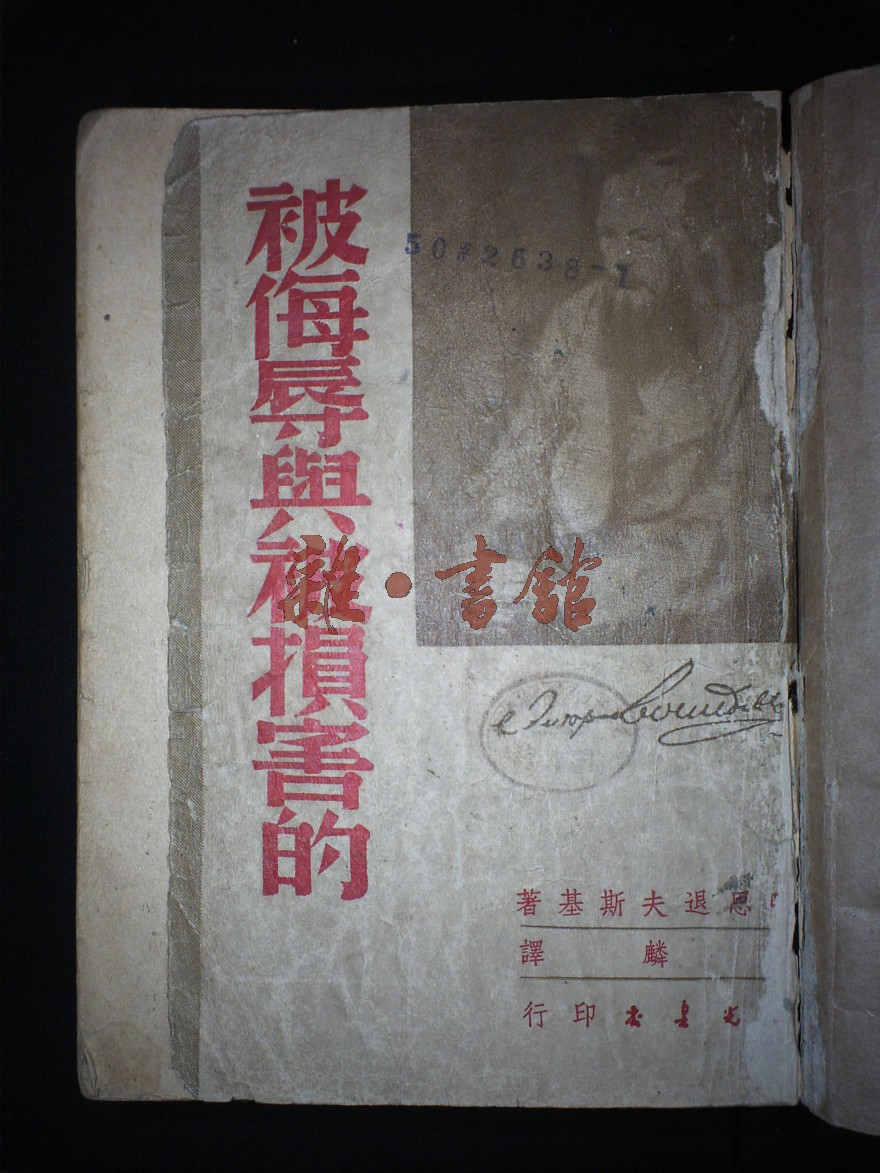 被侮辱與被損害的
50#2638-1
雜·書館
思退夫斯基著
麟譯
光書店印行